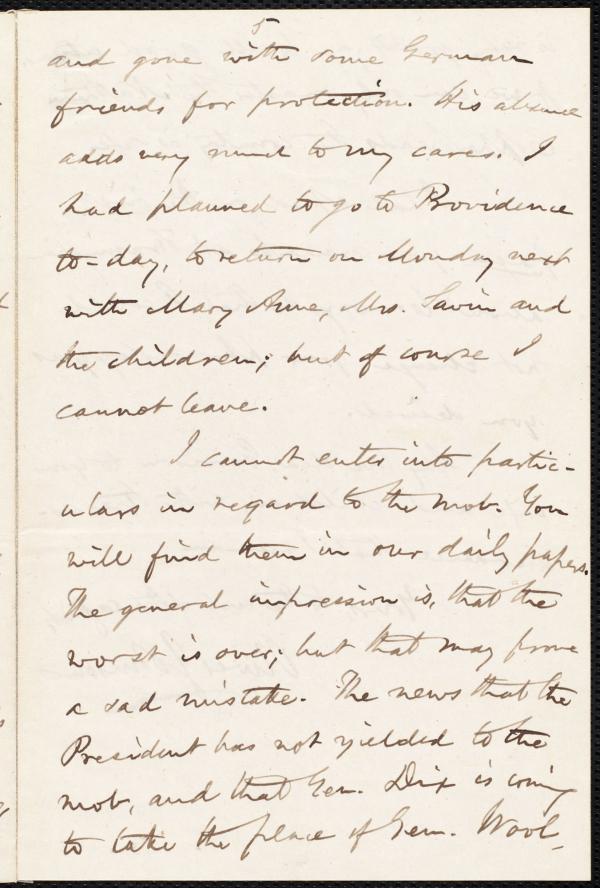 5
and gone with some German
friends for protection. His absence
adds very much to my cares. I
had planned to go to Providence
to-day, to return on Monday next
with Mary Anne, Mrs. Savin and
the children; but of course I
cannot leave.
I cannot enter into partic-
ulars in regard to the mob. You
will find them in our daily papers.
The general impression is, that the
worst is over; but that may prove
a sad mistake. The news that the
President has not yielded to the
mob, and that Gen. Dix is coming
to take the place of Gen. Wool,